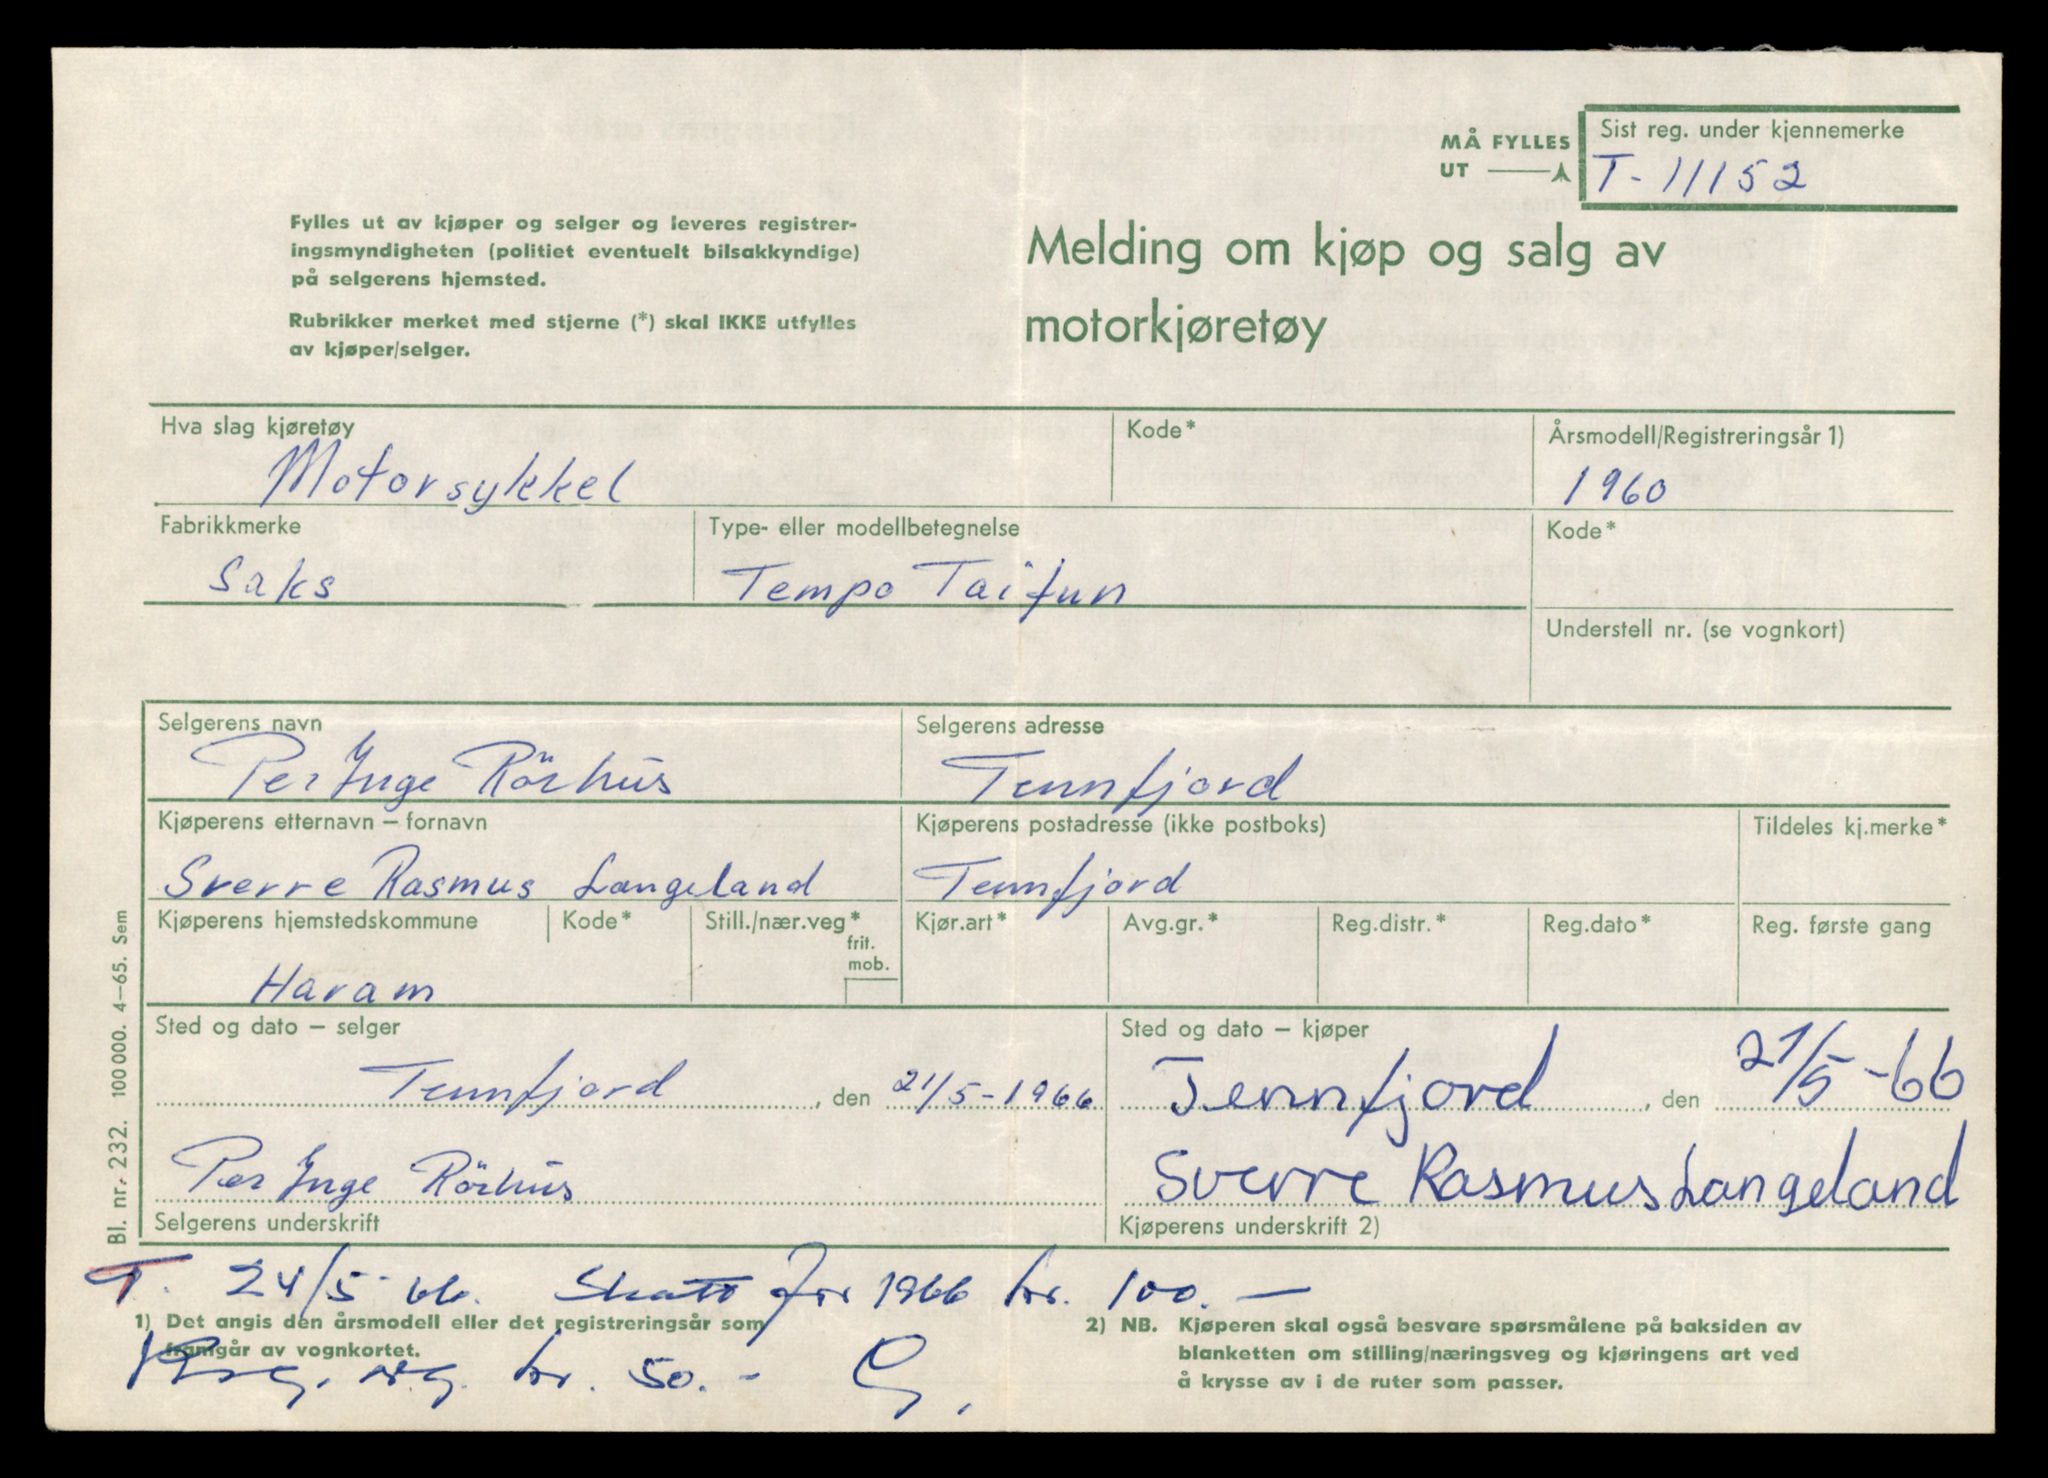 MÅ FYLLES UT
Sist reg. under kjennemerke
T-11152
Fylles ut av kjøper og selger og leveres registrer-
ingsmyndigheten (politiet eventuelt bilsakkyndige)
på selgerens hjemsted.
Rubrikker merket med stjerne (*) skal IKKE utfylles
av kjøper/selger.
Melding om kjøp og salg av
motorkjøretøy
Hva slag kjøretøy
Motorsykkel
Kode*
Årsmodell/Registreringsår 1)
1960
Fabrikkmerke
Saks
Type- eller modellbetegnelse
Tempo Taifun
Kode*
Understell nr. (se vognkort)
Selgerens navn
Per Inge Rörhus
Selgerens adresse
Tennfjord
Kjøperens etternavn – fornavn
Sverre Rasmus Langeland
Kjøperens postadresse (ikke postboks)
Tennfjord
Tildeles kj.merke*
Kjøperens hjemstedskommune
Haram
Kode*
Still./nær.veg*
frit.
mob.
Kjør.art*
Avg.gr.*
Reg.distr.*
Reg.dato*
Reg. første gang
Sted og dato – selger
Tennfjord, den 21/5-1966
Per Inge Rörhus
Selgerens underskrift
Sted og dato – kjøper
Tennfjord, den 21/5-66
Sverre Rasmus Langeland
Kjøperens underskrift 2)
Bl. nr. 232. 100 000. 4–65. Sem
T. 24/5-66. Skatt for 1966 kr. 100.-
1) Det angis den årsmodell eller det registreringsår som
framgår av vognkortet.
kr. 50.-
2) NB. Kjøperen skal også besvare spørsmålene på baksiden av
blanketten om stilling/næringsveg og kjøringens art ved
å krysse av i de ruter som passer.